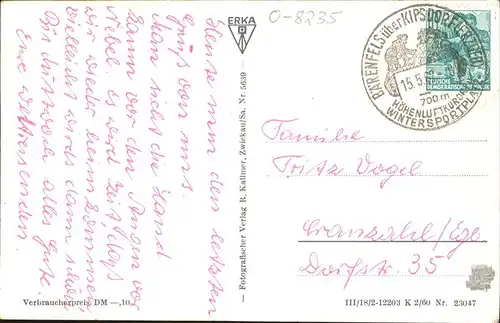 ERKA
0-8235
Heute nun den letzten
Gruß von uns.
Man sieht die Hand
kaum vor den Augen vor
Nebel. Es wird Zeit, daß
wir wieder heim kommen,
vielleicht wirds dann schön.
Bis Mittwoch alles Gute.
Eure Weltreisenden.
Verbraucherpreis DM —,10
Fotografischer Verlag R. Kallmer, Zwickau/Sa. Nr. 5639
BÄRENFELS über KIPSDORF (ERZGEB)
15.5.
700 m
HÖHENLUFTKURORT
WINTERSPORTPLATZ
DEUTSCHE
DEMOKRATISCHE REPUBLIK
Familie
Fritz Vogel
Cranzahl/Egb.
Dorfstr. 35
III/18/2-12203 K 2/60 Nr. 23047